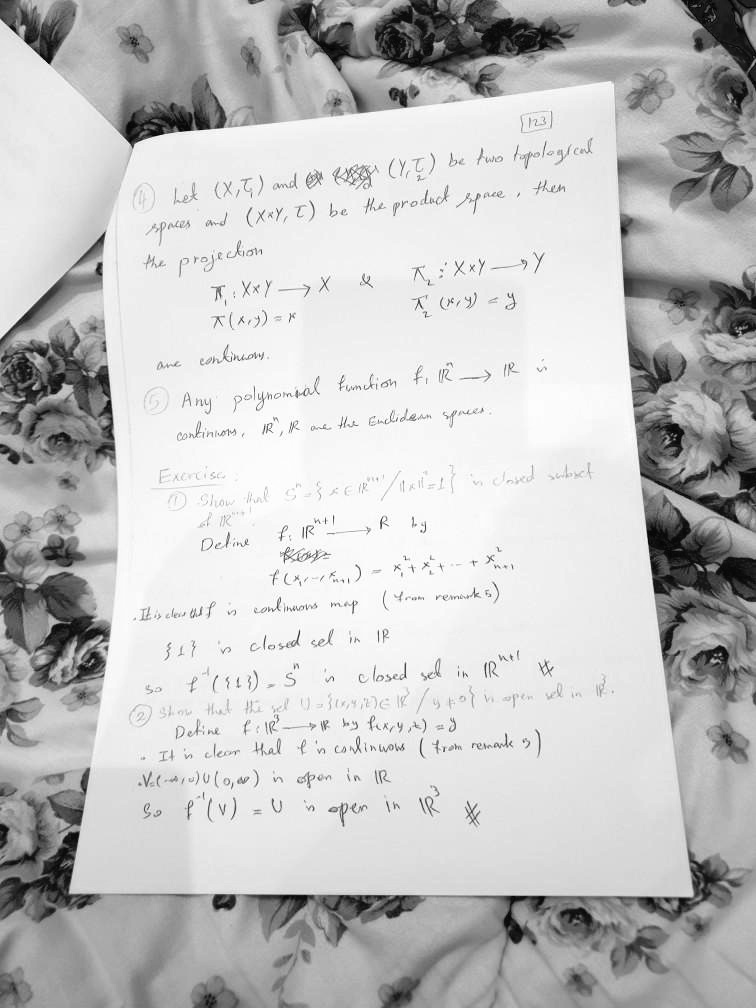 123
④ Let (X,τ₁) and (Y,τ₂) be two topological
spaces and (X×Y, τ) be the product space, then
the projection
π₁: X×Y ⟶ X & π₂: X×Y ⟶ Y
π(x,y) = x π₂(x,y) = y
are continuous.
⑤ Any polynomial function f: ℝⁿ ⟶ ℝ is
continuous, ℝⁿ, ℝ are the Euclidean spaces.
Exercise:
① Show that Sⁿ = {x ∈ ℝⁿ⁺¹ / ||x||² = 1} is closed subset
of ℝⁿ⁺¹.
Define f: ℝⁿ⁺¹ ⟶ ℝ by
f(x₁, --, xₙ₊₁) = x₁² + x₂² + --- + x²ₙ₊₁
. It is clear that f is continuous map (from remark 5)
{1} is closed set in ℝ
so f⁻¹({1}) = Sⁿ is closed set in ℝⁿ⁺¹ #
② Show that the set U = {(x,y,z) ∈ ℝ³ / y ≠ 0} is open set in ℝ³.
Define f: ℝ³ ⟶ ℝ by f(x,y,z) = y
. It is clear that f is continuous (from remark 5)
. V = (-∞,0) ∪ (0,∞) is open in ℝ
So f⁻¹(V) = U is open in ℝ³ #